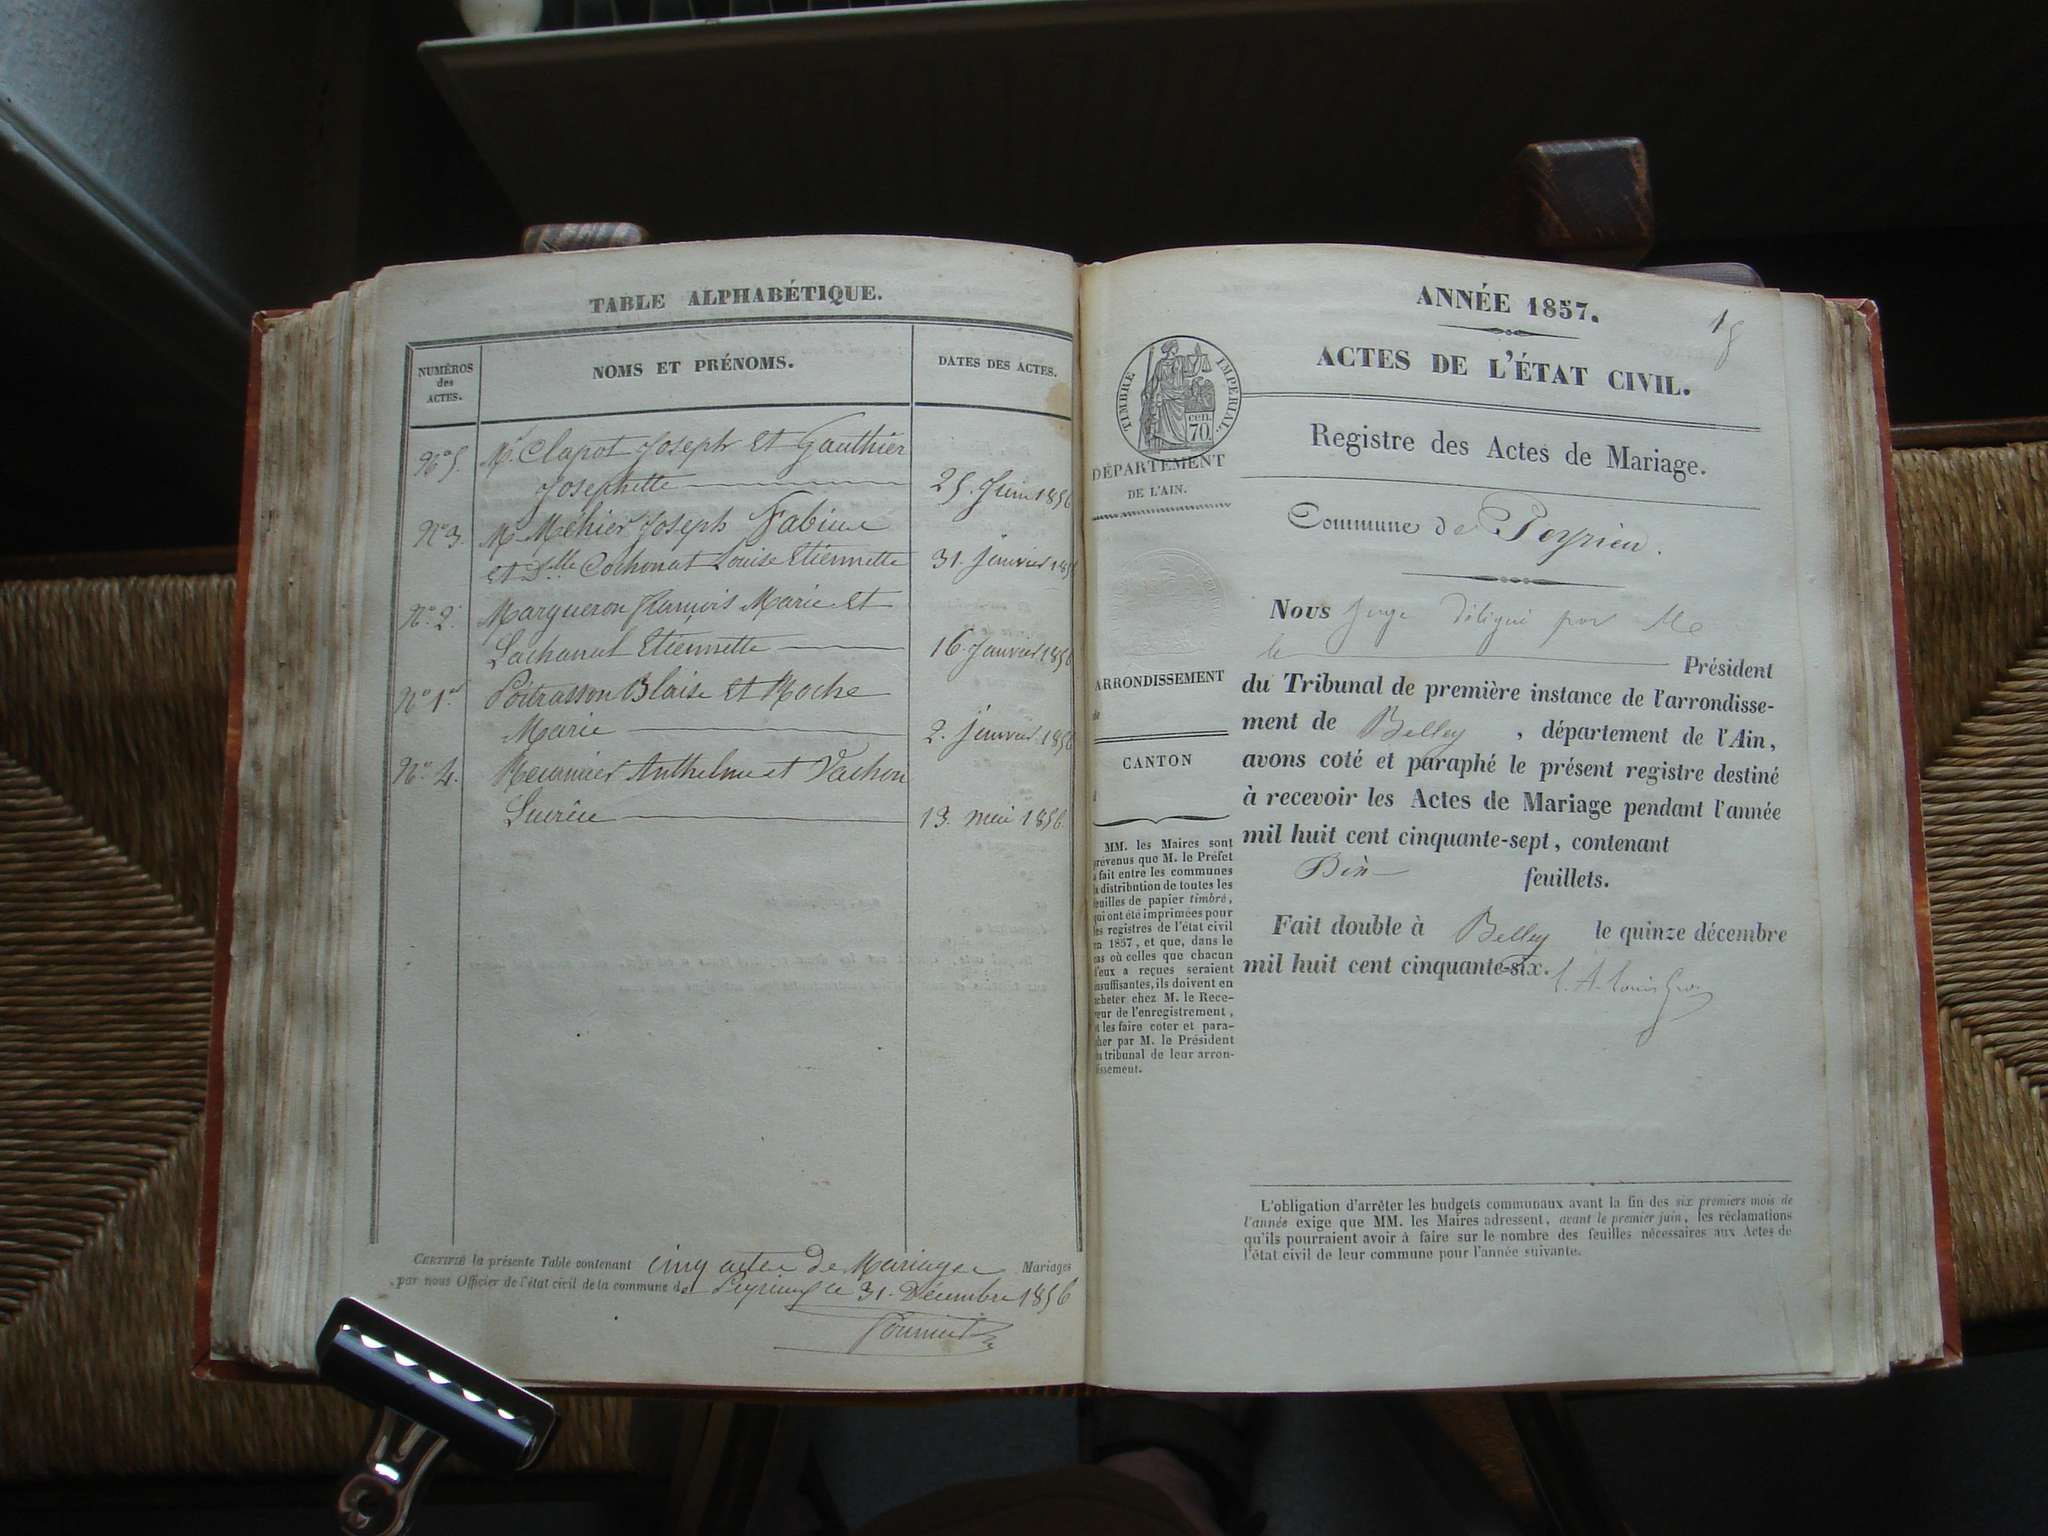 TABLE ALPHABÉTIQUE.
NUMÉROS
des
ACTES.
NOMS ET PRÉNOMS.
DATES DES ACTES.
N° 5. Mr. Clapot Joseph et Gauthier
Josephette 25. Juin 1856
N° 3. Mr Mehier Joseph Fabien
et Dlle Cochonat Louise Etiennette 31. janvier 185
N° 2. Margueron François Marie et
Lachanal Etiennette 16. Janvier 1856
N° 1er Poitrasson Blaise et Roche
Marie 2. janvier 1856
N° 4. Anthelme et Vachon
13. mai 1856.
CERTIFIÉ la présente Table contenant cinq actes de Mariages Mariages
par nous Officier de l'état civil de la commune de Peyrieu le 31. Décembre 1856
ANNÉE 1857.
1
ACTES DE L'ÉTAT CIVIL.
TIMBRE IMPÉRIAL.
cen.
70
Registre des Actes de Mariage.
DÉPARTEMENT
DE L'AIN.
Commune de Peyrieu.
Nous Juge délégué par Mr
le Président
du Tribunal de première instance de l'arrondisse-
ment de Belley, département de l'Ain,
avons coté et paraphé le présent registre destiné
à recevoir les Actes de Mariage pendant l'année
mil huit cent cinquante-sept, contenant
feuillets.
Fait double à Belley le quinze décembre
mil huit cent cinquante-six.
ARRONDISSEMENT
de
CANTON
MM. les Maires sont
prévenus que M. le Préfet
a fait entre les communes
la distribution de toutes les
feuilles de papier timbré,
qui ont été imprimées pour
les registres de l'état civil
en 1857, et que, dans le
cas où celles que chacun
d'eux a reçues seraient
insuffisantes, ils doivent en
acheter chez M. le Rece-
veur de l'enregistrement,
et les faire coter et para-
pher par M. le Président
du tribunal de leur arron-
dissement.
L'obligation d'arrêter les budgets communaux avant la fin des six premiers mois de
l'année exige que MM. les Maires adressent, avant le premier juin, les réclamations
qu'ils pourraient avoir à faire sur le nombre des feuilles nécessaires aux Actes de
l'état civil de leur commune pour l'année suivante.